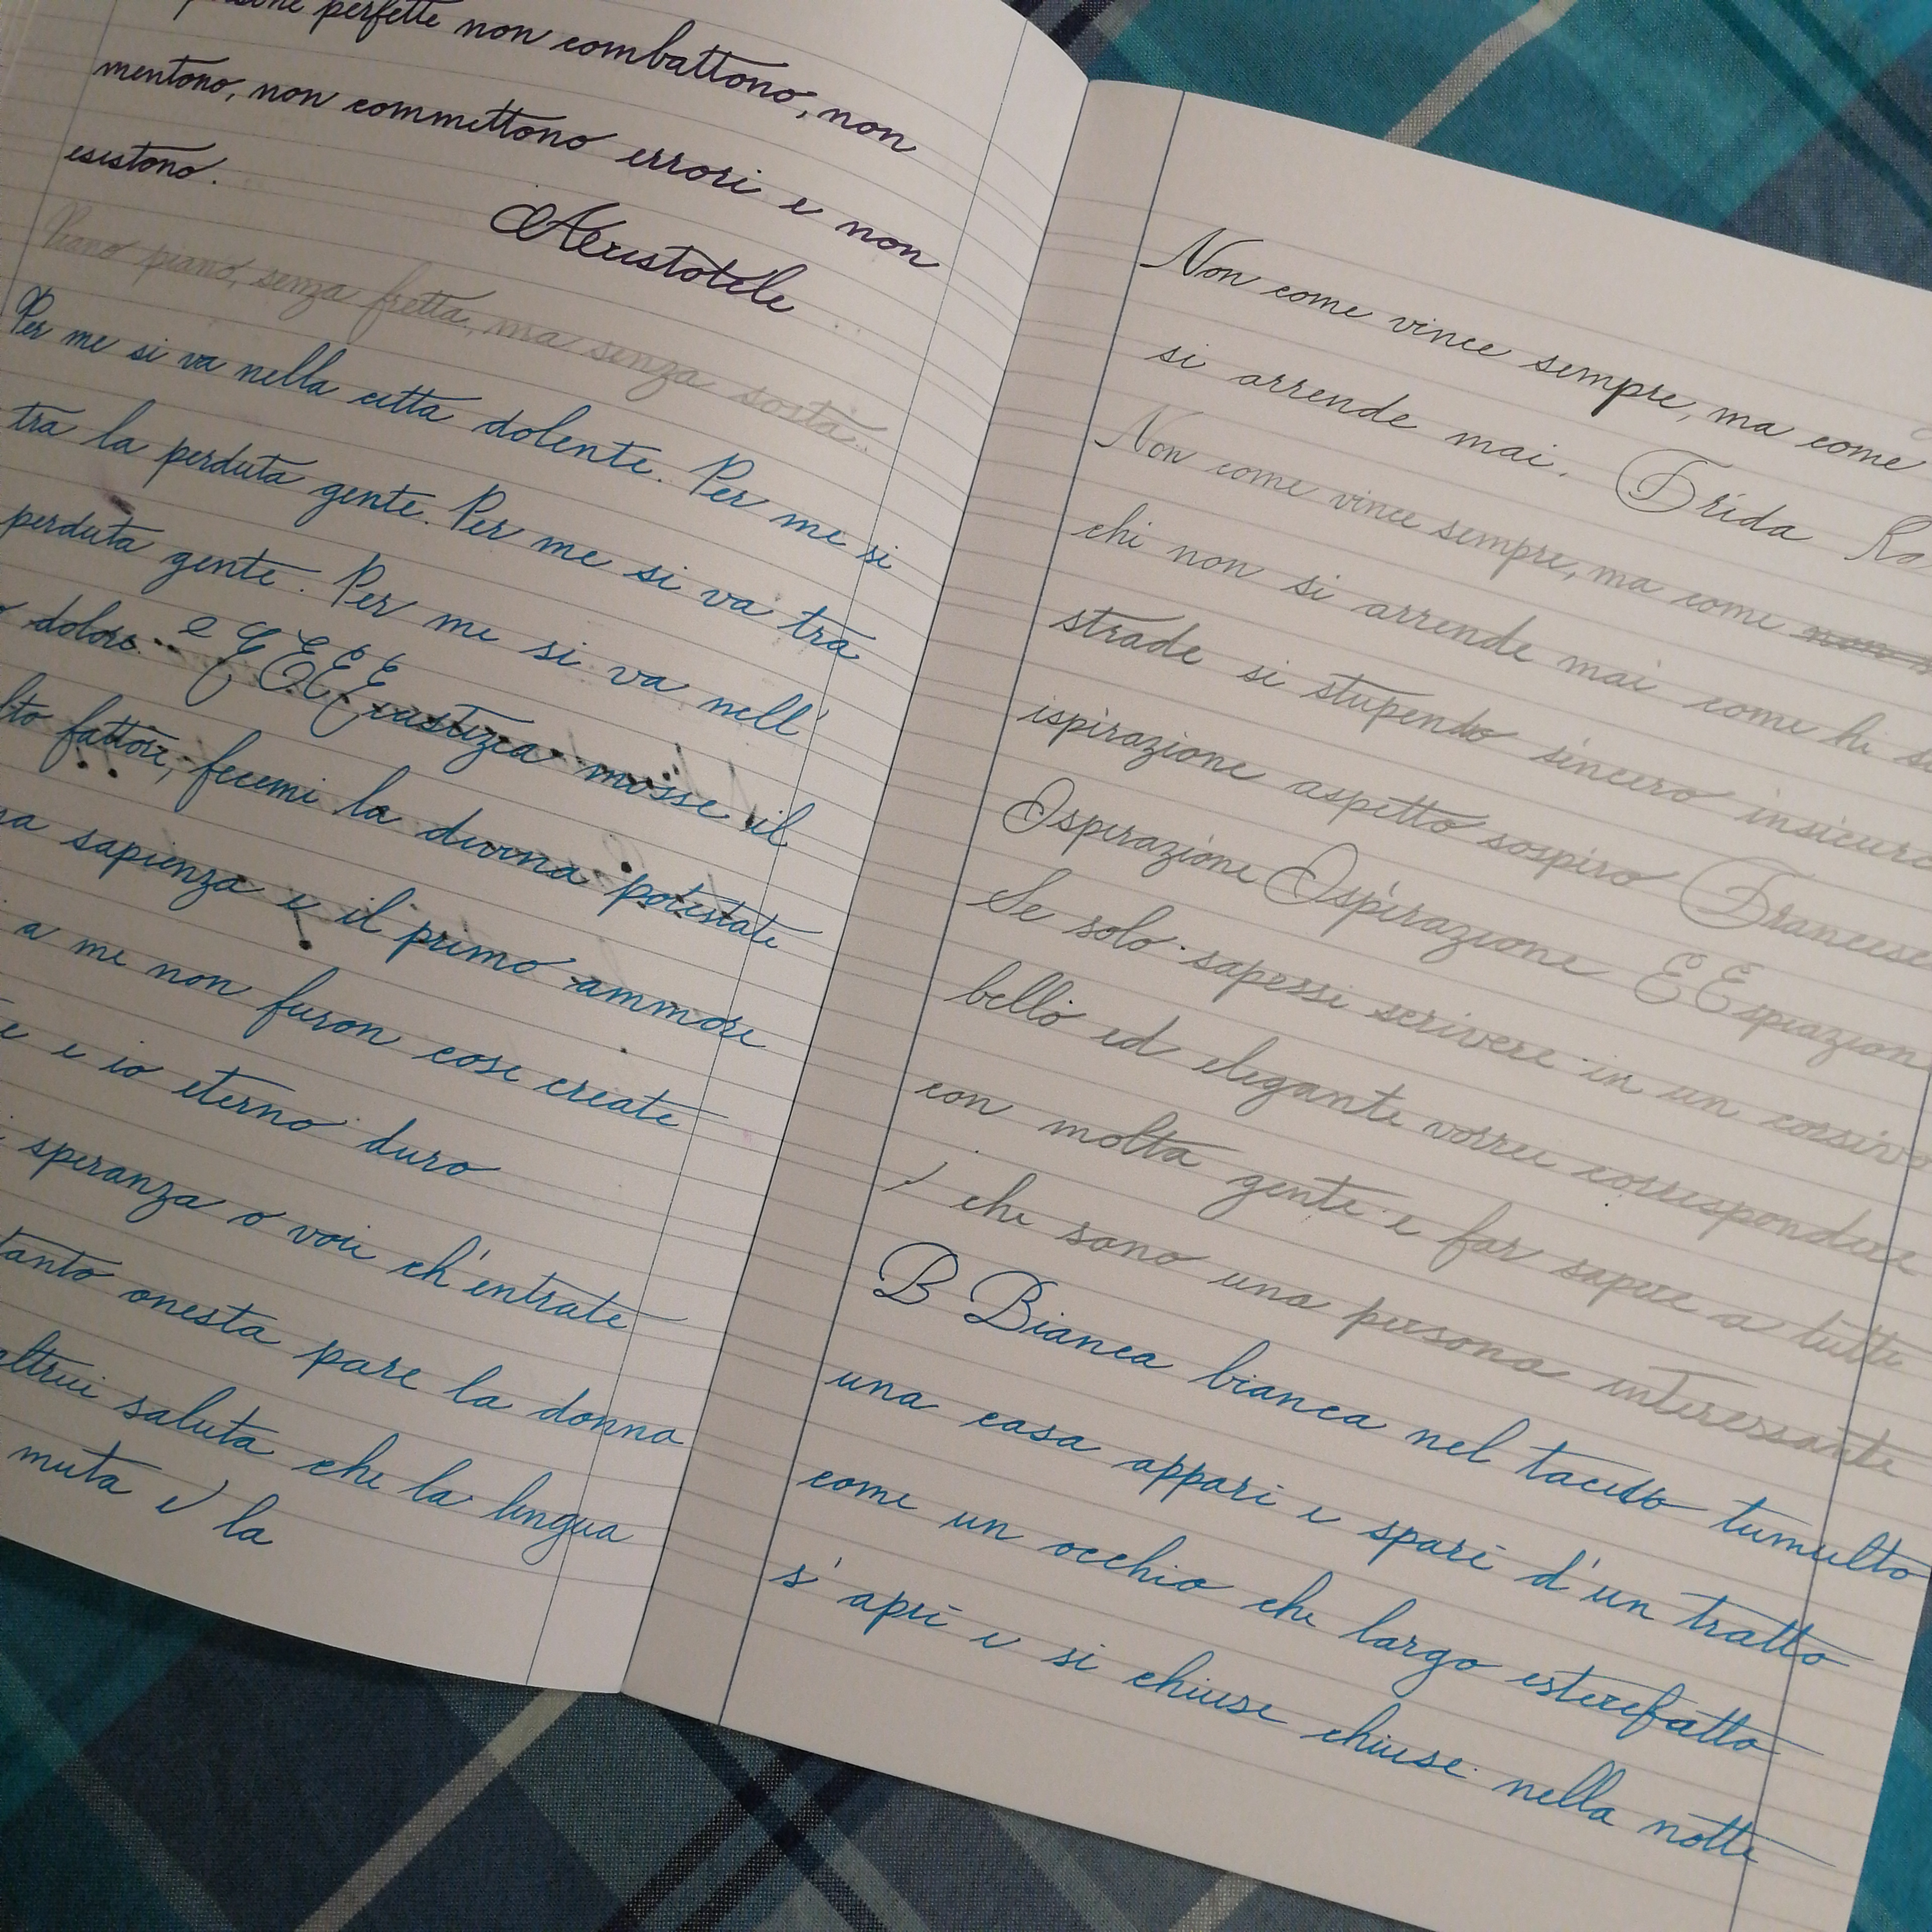 perfette non combattono, non
mentono, non commettono errori e non
esistono.
Aristotele
Piano piano, senza fretta, ma senza sosta...
Per me si va nella citta dolente. Per me si
tra la perduta gente. Per me si va tra
perduta gente. Per me si va nell'
dolore... e E E E E iustizia mosse il
lto fattore, fecemi la divina potestate
sapienza e il primo ammore
a me non furon cose create
e io eterno duro
speranza o voi ch'entrate
tanto onesta pare la donna
altrui saluta che la lingua
muta e la
Non come vince sempre, ma come
si arrende mai. Frida
Non come vince sempre, ma come non
chi non si arrende mai come hi
strade si stupendo sincero insicura
ispirazione aspetto sospiro Francesc
Ispirazione Ispirazione E Espiazion
Se solo sapessi scrivere in un corsivo
bello ed elegante vorrei corrispondere
con molta gente e far sapere a tutti
che sono una persona interessante
B Bianca bianca nel tacito tumulto
una casa apparì e sparì d'un tratto
come un occhio che largo esterefatto
s'aprì e si chiuse chiuse nella notte